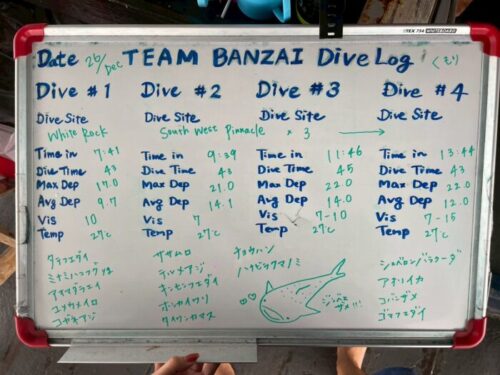 WHITEBOARD
Date 26/Dec TEAM BANZAI Dive Log くもり
Dive #1 Dive #2 Dive #3 Dive #4
Dive Site Dive Site Dive Site Dive Site
White Rock South West Pinnacle × 3 →
Time in 7:41 Time in 9:39 Time in 11:46 Time in 13:44
Dive Time 43 Dive Time 43 Dive Time 45 Dive Time 43
Max Dep 17.0 Max Dep 21.0 Max Dep 22.0 Max Dep 22.0
Avg Dep 9.7 Avg Dep 14.1 Avg Dep 14.8 Avg Dep 12.0
Vis 10 Vis 7 Vis 7-10 Vis 7-15
Temp 27℃ Temp 27℃ Temp 27℃ Temp 27℃
タテフエダイ
ミナミハコフグyg
アマダラコエイ
ユメウメイロ
コガネアジ
ササムロ
テルメアジ
キンセンフエダイ
ホシカイワリ
タイワンカマス
チョウハン
ハナビラクマノミ
ジンベエ
ザメ!!!
シェベロンバラクーダ
アオリイカ
コバンザメ
ゴマフエダイ